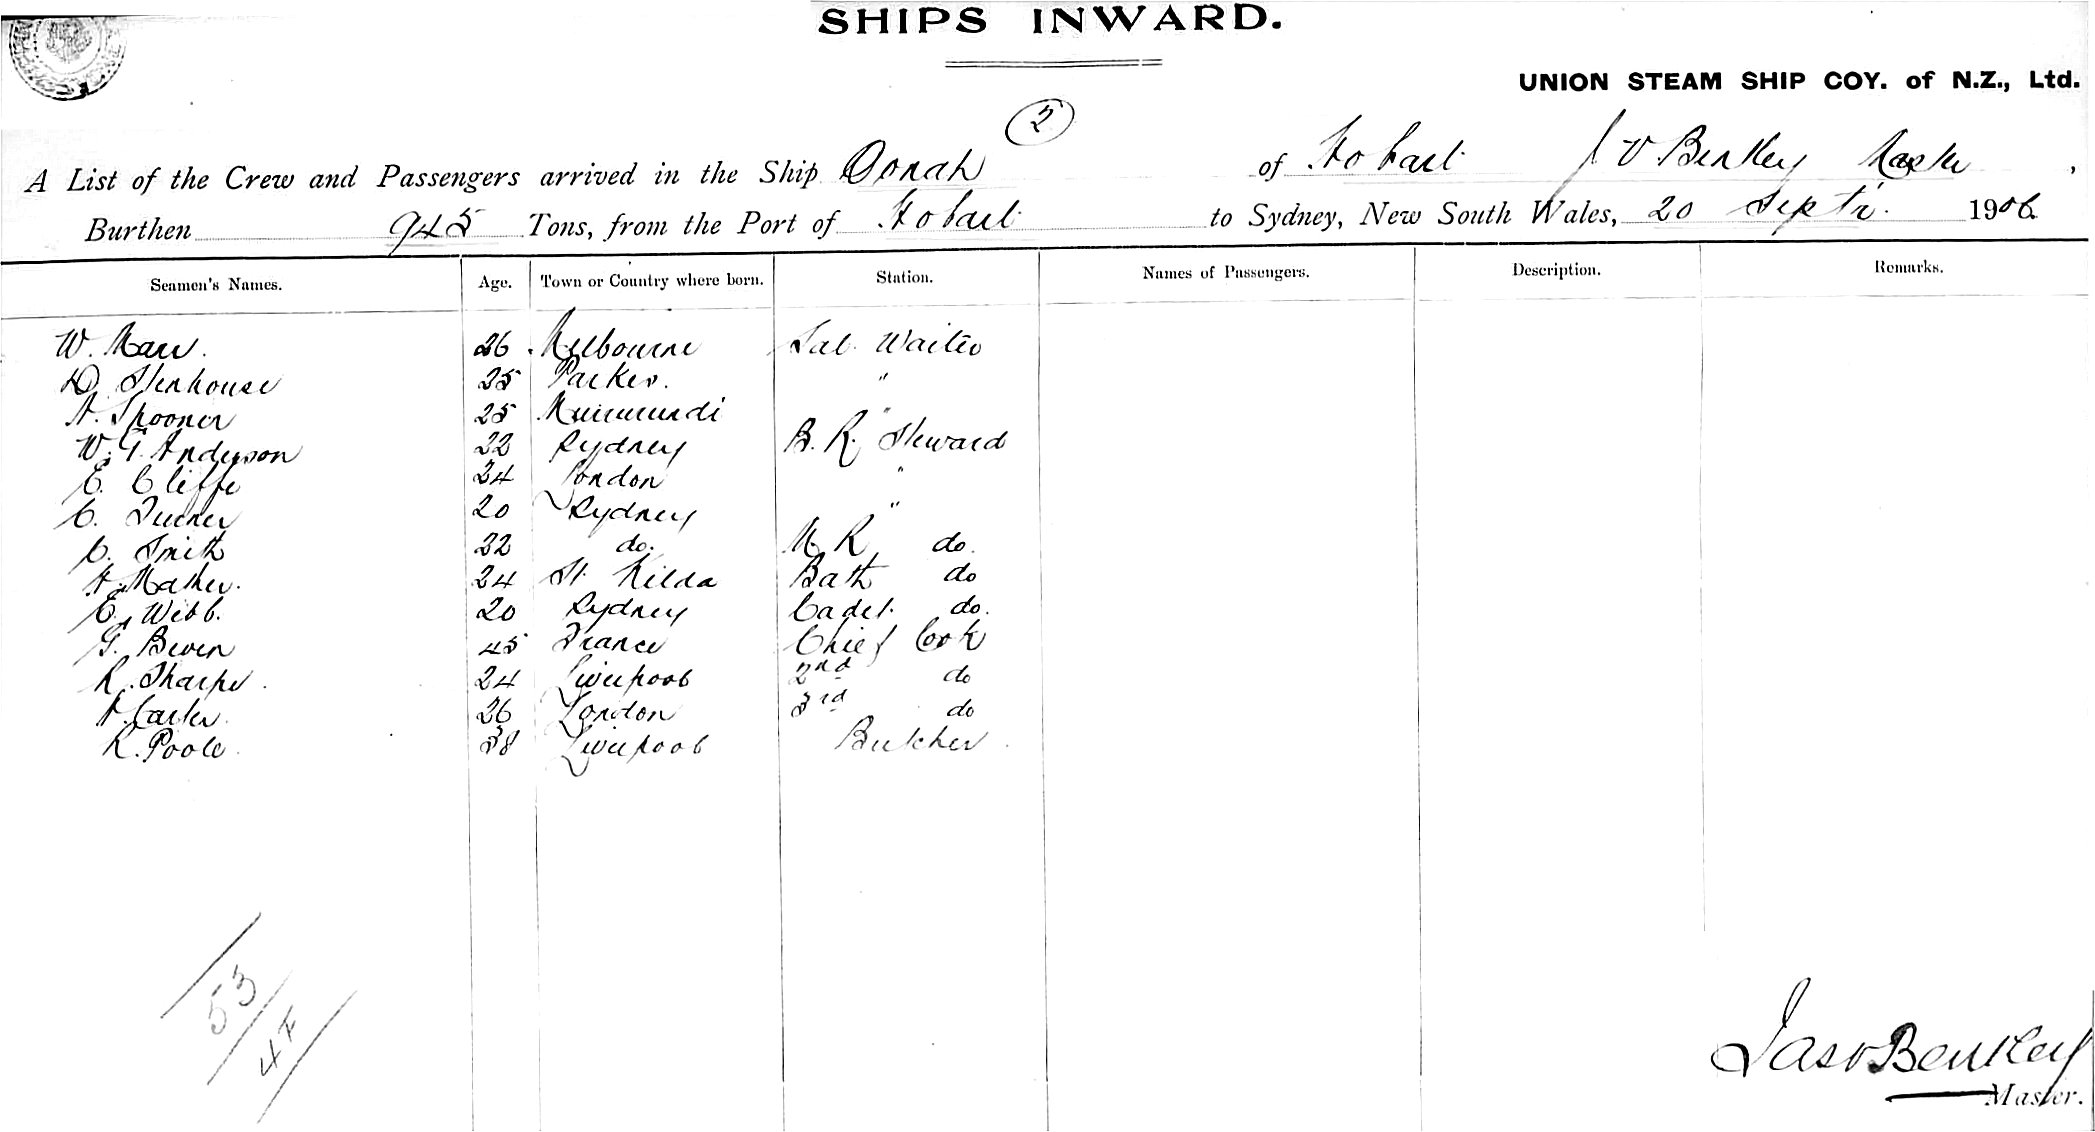 SHIPS INWARD.
UNION STEAM SHIP COY. of N.Z., Ltd.
2
A List of the Crew and Passengers arrived in the Ship Oonah of Hobart J V Bentley Master,
Burthen 945 Tons, from the Port of Hobart to Sydney, New South Wales, 20 Septr. 1906
Seamen's Names. Age. Town or Country where born. Station. Names of Passengers. Description. Remarks.
W. Marr. 26 Melbourne Sal. Waiter
D. Stenhouse 25 Parkes. "
A. Spooner 25 Murrurundi "
W. G. Anderson 22 Sydney B. R. Steward
E. Cliffe 24 London "
C. Turner 20 Sydney "
C. Smith 22 do. M. R do.
A. Mather. 24 St. Kilda Bath do
E. Webb. 20 Sydney Cadet. do.
G. Beven 45 France Chief Cook
R. Sharpe. 24 Liverpool 2nd do
A. Carter. 26 London 3rd do
R. Poole. 38 Liverpool Butcher.
53
47
Jas V Bentley
Master.